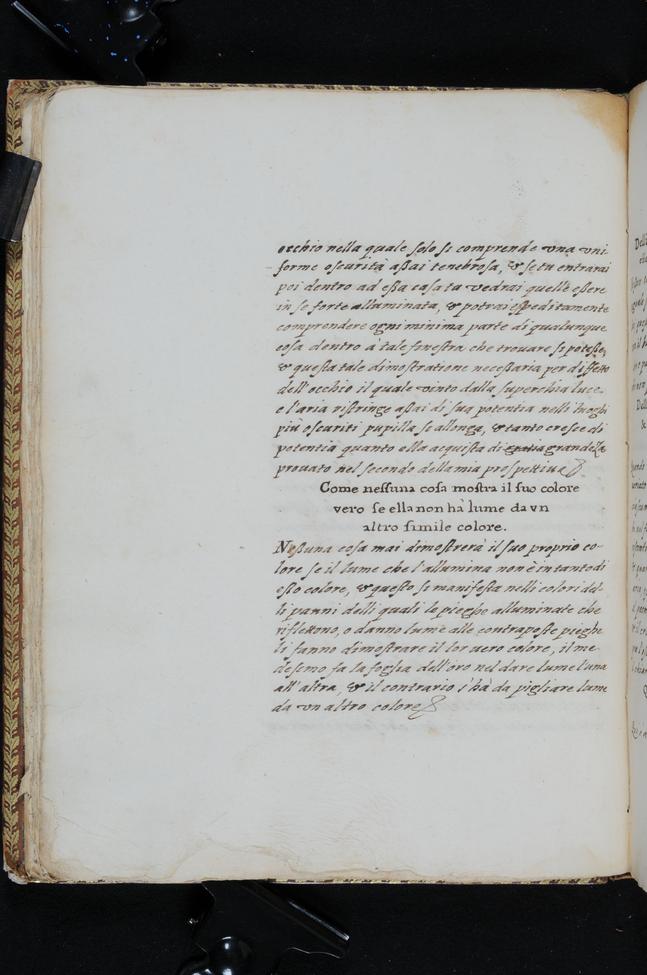 occhio nella quale solo si comprende vna vni
forme oscurità aßai tenebrosa, & se tu entrarai
poi dentro ad eßa casa tu vedrai quelle eßere
in se forte alluminata, & potrai espeditamente
comprendere ogni minima parte di qualunque
cosa dentro à tale finestra che trouare si poteße,
& questa tale dimostratione neceßaria per diffetto
dell'occhio il quale vinto dalla superchia luce
e l'aria ristringe aßai di sua potentia nelli luoghi
più oscuriti pupilla se allonga, & tanto cresce di
potentia quanto ella acquista di grandeza
prouato nel secondo della mia prospettiua
Come nessuna cosa mostra il suo colore
vero se ella non hà lume da vn
altro simile colore.
Neßuna cosa mai dimostrerà il suo proprio co-
lore se il lume che l'allumina non è in tanto di
eßo colore, & questo si manifesta nelli colori del-
li panni delli quali le pieghe alluminate che
riflettono, o danno lume alle contraposte pieghe
li fanno dimostrare il lor uero colore, il me-
desimo fa la foglia dell'oro nel dare lume l'una
all'altra, & il contrario s'hà da pigliare lume
da vn altro colore